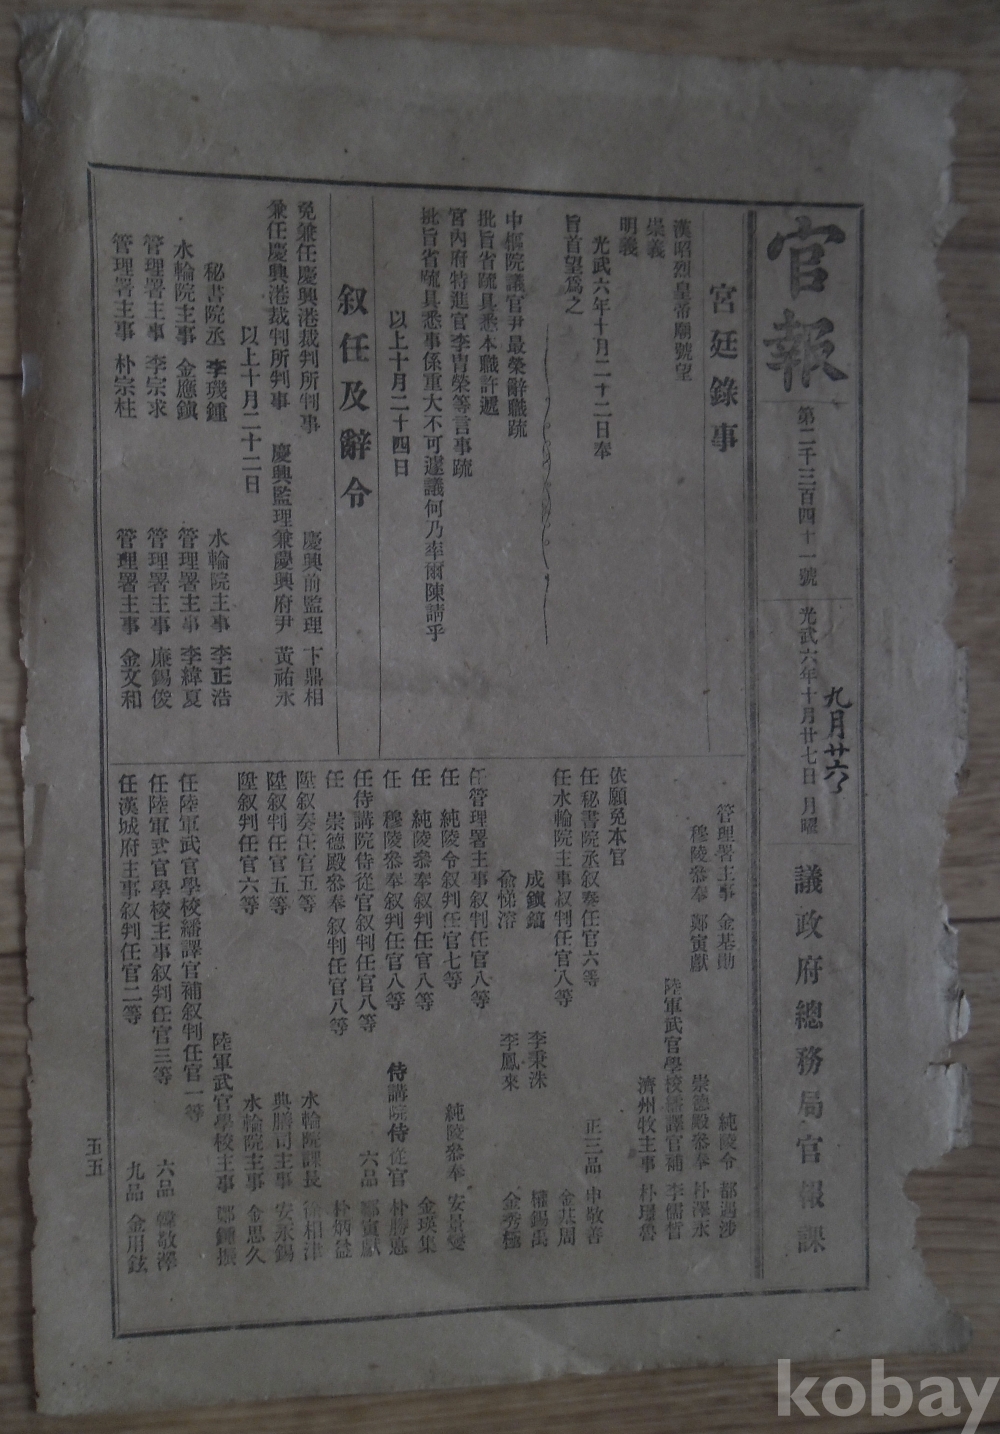 官報
第二千三百四十一號
光武六年十月廿七日 月曜
九月廿六
議政府總務局官報課
宮廷錄事
漢昭烈皇帝廟號望
崇義
明義
光武六年十月二十二日奉
旨首望爲之
中樞院議官尹最榮辭職疏
批旨省疏具悉本職許遞
宮內府特進官李冑榮等言事疏
批旨省疏具悉事係重大不可遽議何乃率爾陳請乎
以上十月二十四日
叙任及辭令
免兼任慶興港裁判所判事 慶興前監理 卞鼎相
兼任慶興港裁判所判事 慶興監理兼慶興府尹 黃祐永
以上十月二十二日
秘書院丞 李璣鍾 水輪院主事 李正浩
水輪院主事 金應鎭 管理署主事 李緯夏
管理署主事 李宗求 管理署主事 廉錫俊
管理署主事 朴宗柱 管理署主事 金文和
管理署主事 金基勛 純陵令 都遇涉
穆陵叅奉 鄭寅獻 崇德殿叅奉 朴澤永
陸軍武官學校繙譯官補 李儒晳
濟州牧主事 朴瓊魯
依願免本官
任秘書院丞叙奏任官六等 正三品 申敬善
任水輪院主事叙判任官八等 金基周
成鎭鎬 李秉洙 權錫禹
兪悌濬 李鳳來 金秀極
任管理署主事叙判任官八等
任 純陵令叙判任官七等 純陵叅奉 安景燮
任 純陵叅奉叙判任官八等 金瑛集
任 穆陵叅奉叙判任官八等 侍講院侍從官 朴勝憙
任侍講院侍從官叙判任官八等 六品 鄭寅獻
任 崇德殿叅奉叙判任官八等 朴炳益
陞叙奏任官五等 水輪院課長 徐相津
陞叙判任官五等 典膳司主事 安永錫
陞叙判任官六等 水輪院主事 金思久
陸軍武官學校主事 鄭鍾振
任陸軍武官學校繙譯官補叙判任官一等
任陸軍武官學校主事叙判任官三等 六品 韓敬澤
任漢城府主事叙判任官二等 九品 金用鉉
五五
kobay